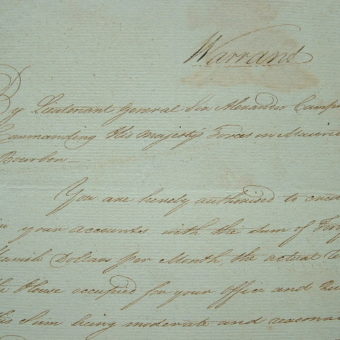 Warrant
By Lieutenant General Sir Alexander Camp
Commanding His Majesty's Forces in Maurit
Bourbon
You are hereby authorised to
your accounts with the Sum of
Dollars per Month the actual
House occupied for your Office and
Sum being moderate and reasonab